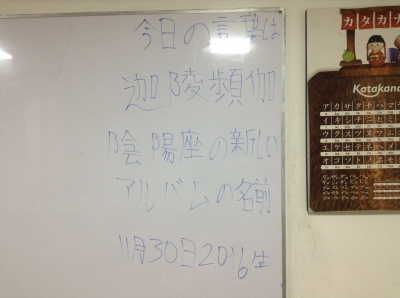 今日の言葉は
迦陵頻伽
陰陽座の新しい
アルバムの名前
11月30日2016生
カタカナ
Katakana
アカサタナハマ
イキシチニヒミ
ウクスツヌフム
エケセテネヘメ
オコソトノホモ